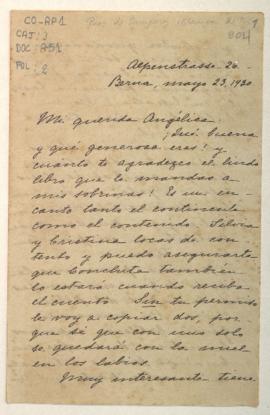 CO-AP1
CAJ: 3
DOC: A51
FOL: 2
804
Alpenstrasse 26.
Berna, mayo 23, 1930
Mi querida Angélica:
¡Qué buena
y qué generosa eres! y
cuánto te agradezco el lindo
libro que le mandas a
mis sobrinas! Es un en-
canto tanto el continente
como el contenido. Silvia
y Cristina locas de con-
tento y puedo asegurarte
que Conchita también
lo estará cuando reciba
el cuento. Sin tu permiso
le voy a copiar dos, por
que sé que con uno solo
se quedará con la miel
en los labios.
Muy interesante tiene